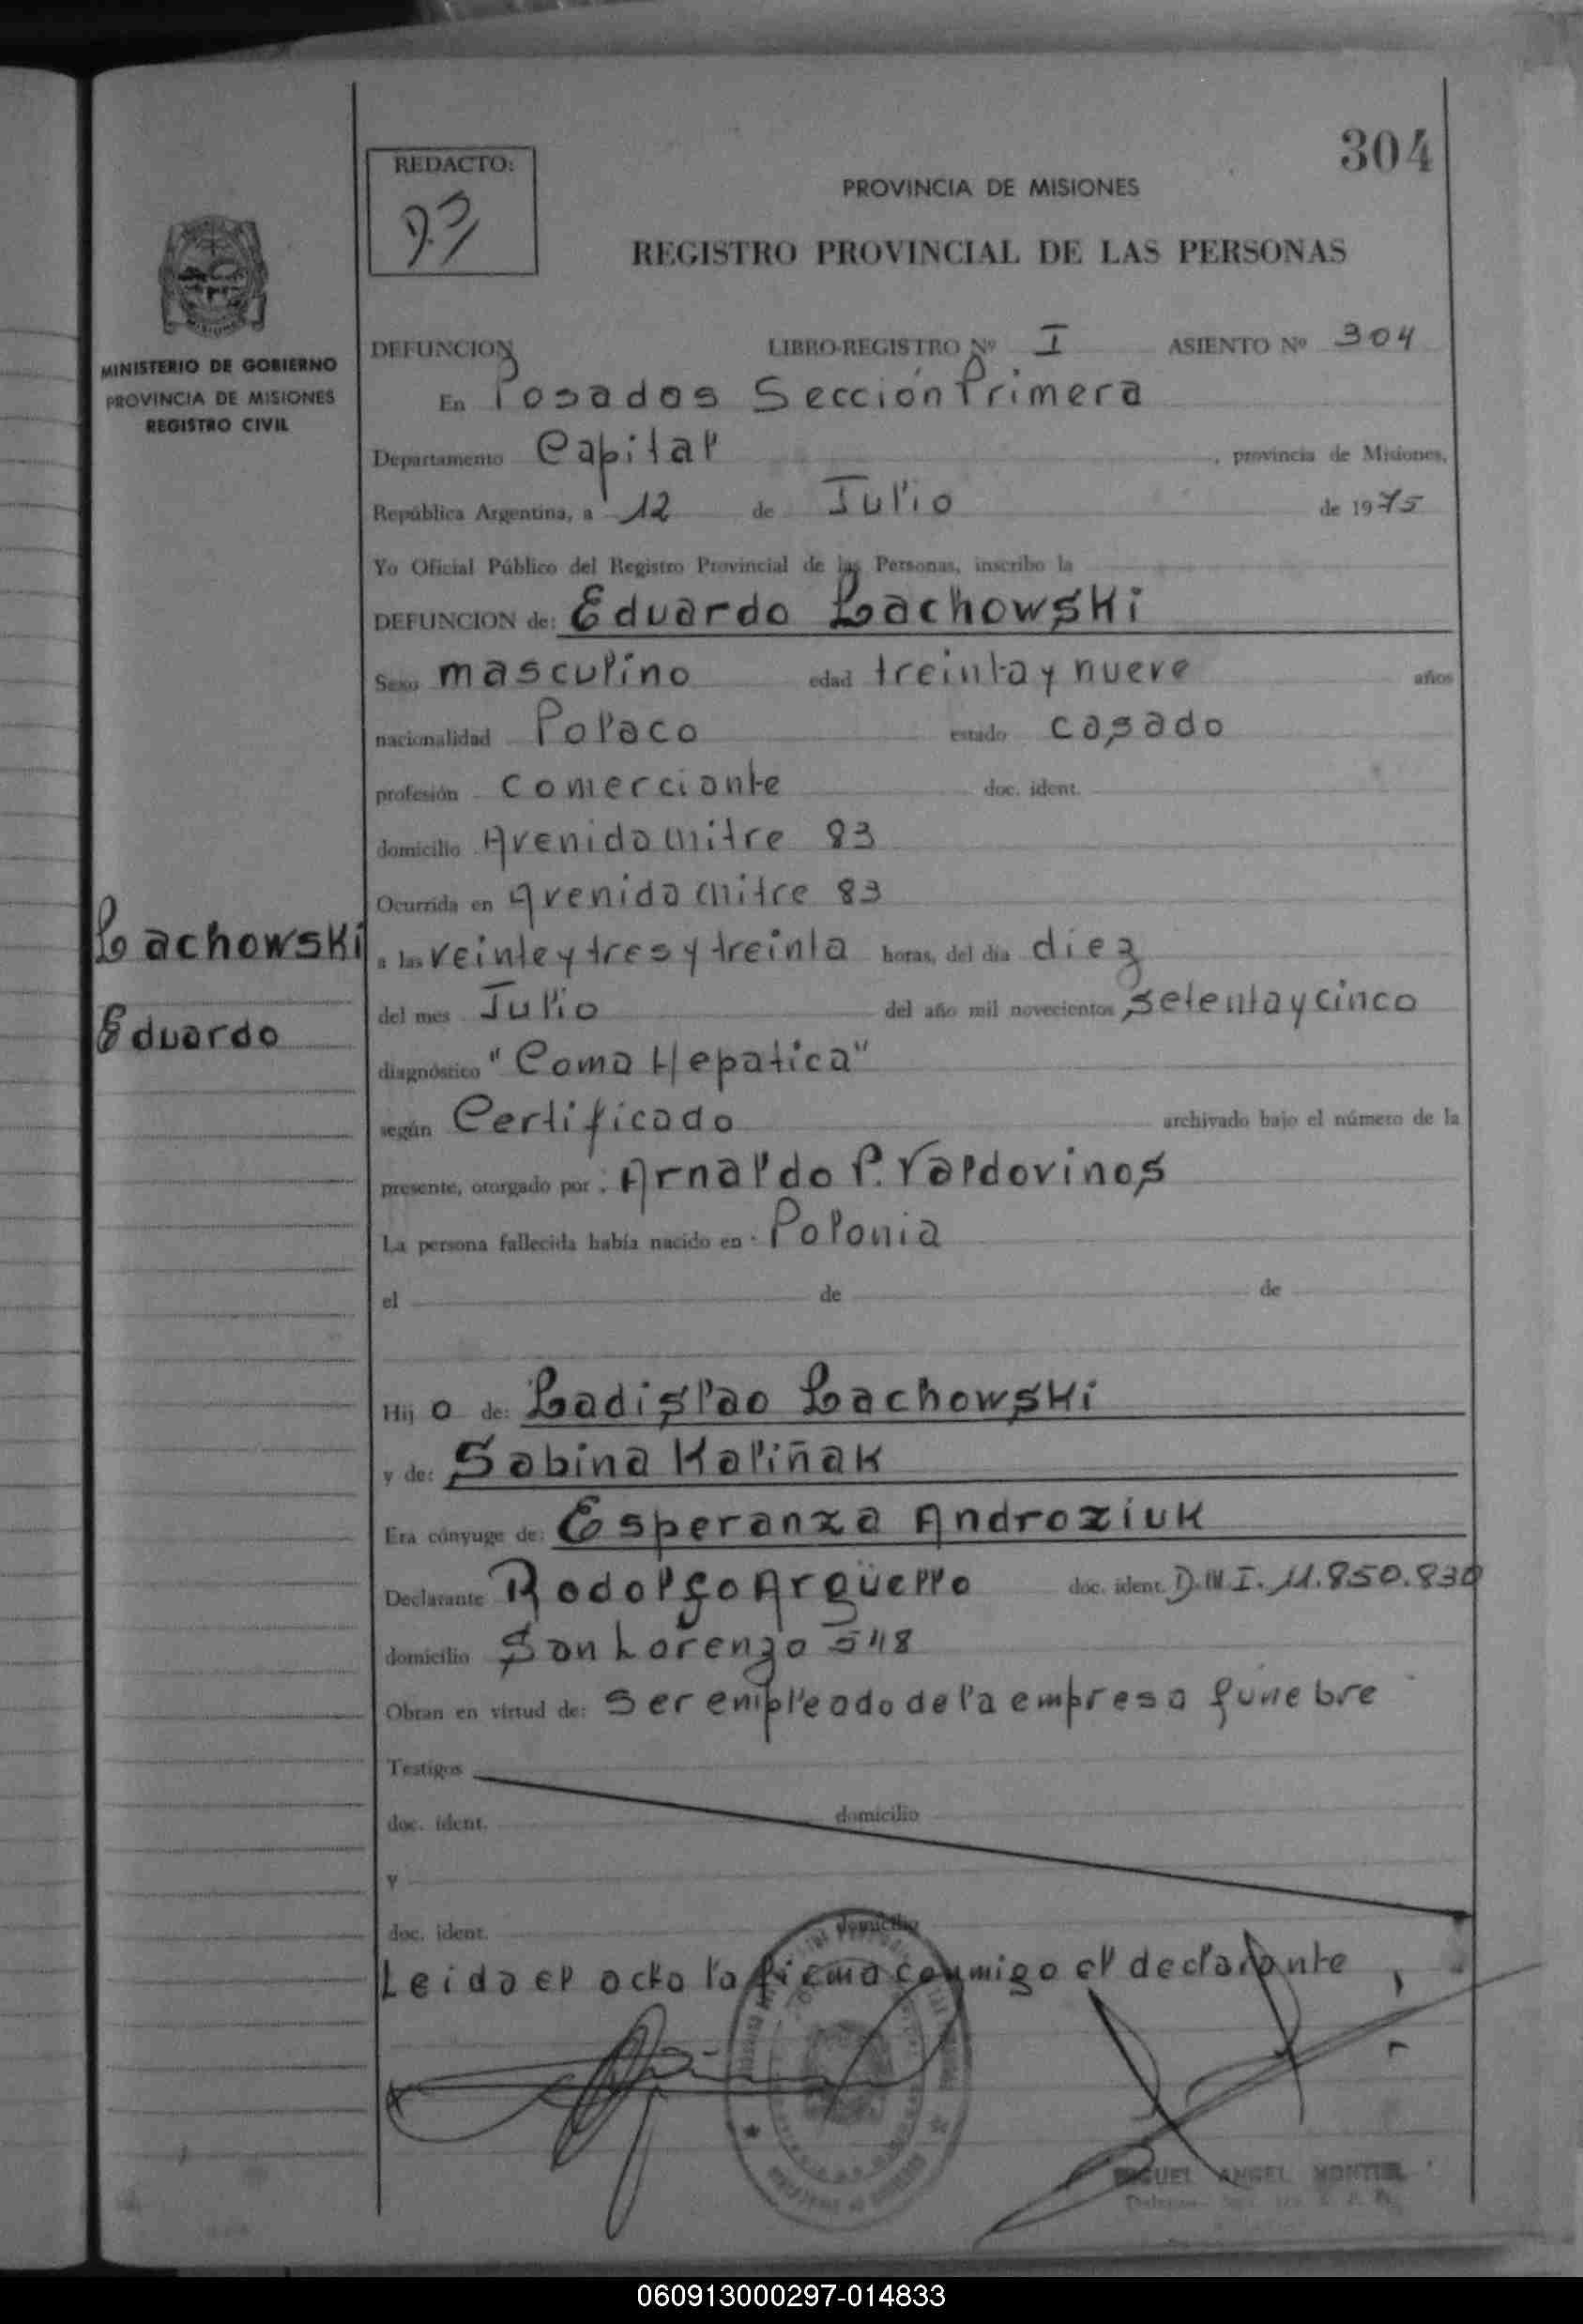 304
REDACTO:
PROVINCIA DE MISIONES
REGISTRO PROVINCIAL DE LAS PERSONAS
MINISTERIO DE GOBIERNO
PROVINCIA DE MISIONES
REGISTRO CIVIL
DEFUNCION LIBRO-REGISTRO Nº I ASIENTO Nº 304
En Posadas Sección Primera
Departamento Capital , provincia de Misiones,
República Argentina, a 12 de Julio de 1975
Yo Oficial Público del Registro Provincial de las Personas, inscribo la
DEFUNCION de: Eduardo Lachowski
Sexo masculino edad treinta y nueve años
nacionalidad Polaco estado casado
profesión comerciante doc. ident.
domicilio Avenida Mitre 83
Ocurrida en Avenida Mitre 83
Lachowski
Eduardo
a las veinte y tres y treinta horas, del día diez
del mes Julio del año mil novecientos setenta y cinco
diagnóstico "Coma Hepatica"
según Certificado archivado bajo el número de la
presente, otorgado por: Arnaldo P. Valdovinos
La persona fallecida había nacido en Polonia
el de de
Hijo de: Ladislao Lachowski
y de: Sabina Kaliñak
Era cónyuge de: Esperanza Androziuk
Declarante Rodolfo Argüello doc. ident. D.N.I. 11.850.830
domicilio San Lorenzo 548
Obran en virtud de: ser empleado de la empresa fúnebre
Testigos
doc. ident. domicilio
y
doc. ident. domicilio
Leida el acta la firma conmigo el declarante
MIGUEL ANGEL MONTIEL
060913000297-014833